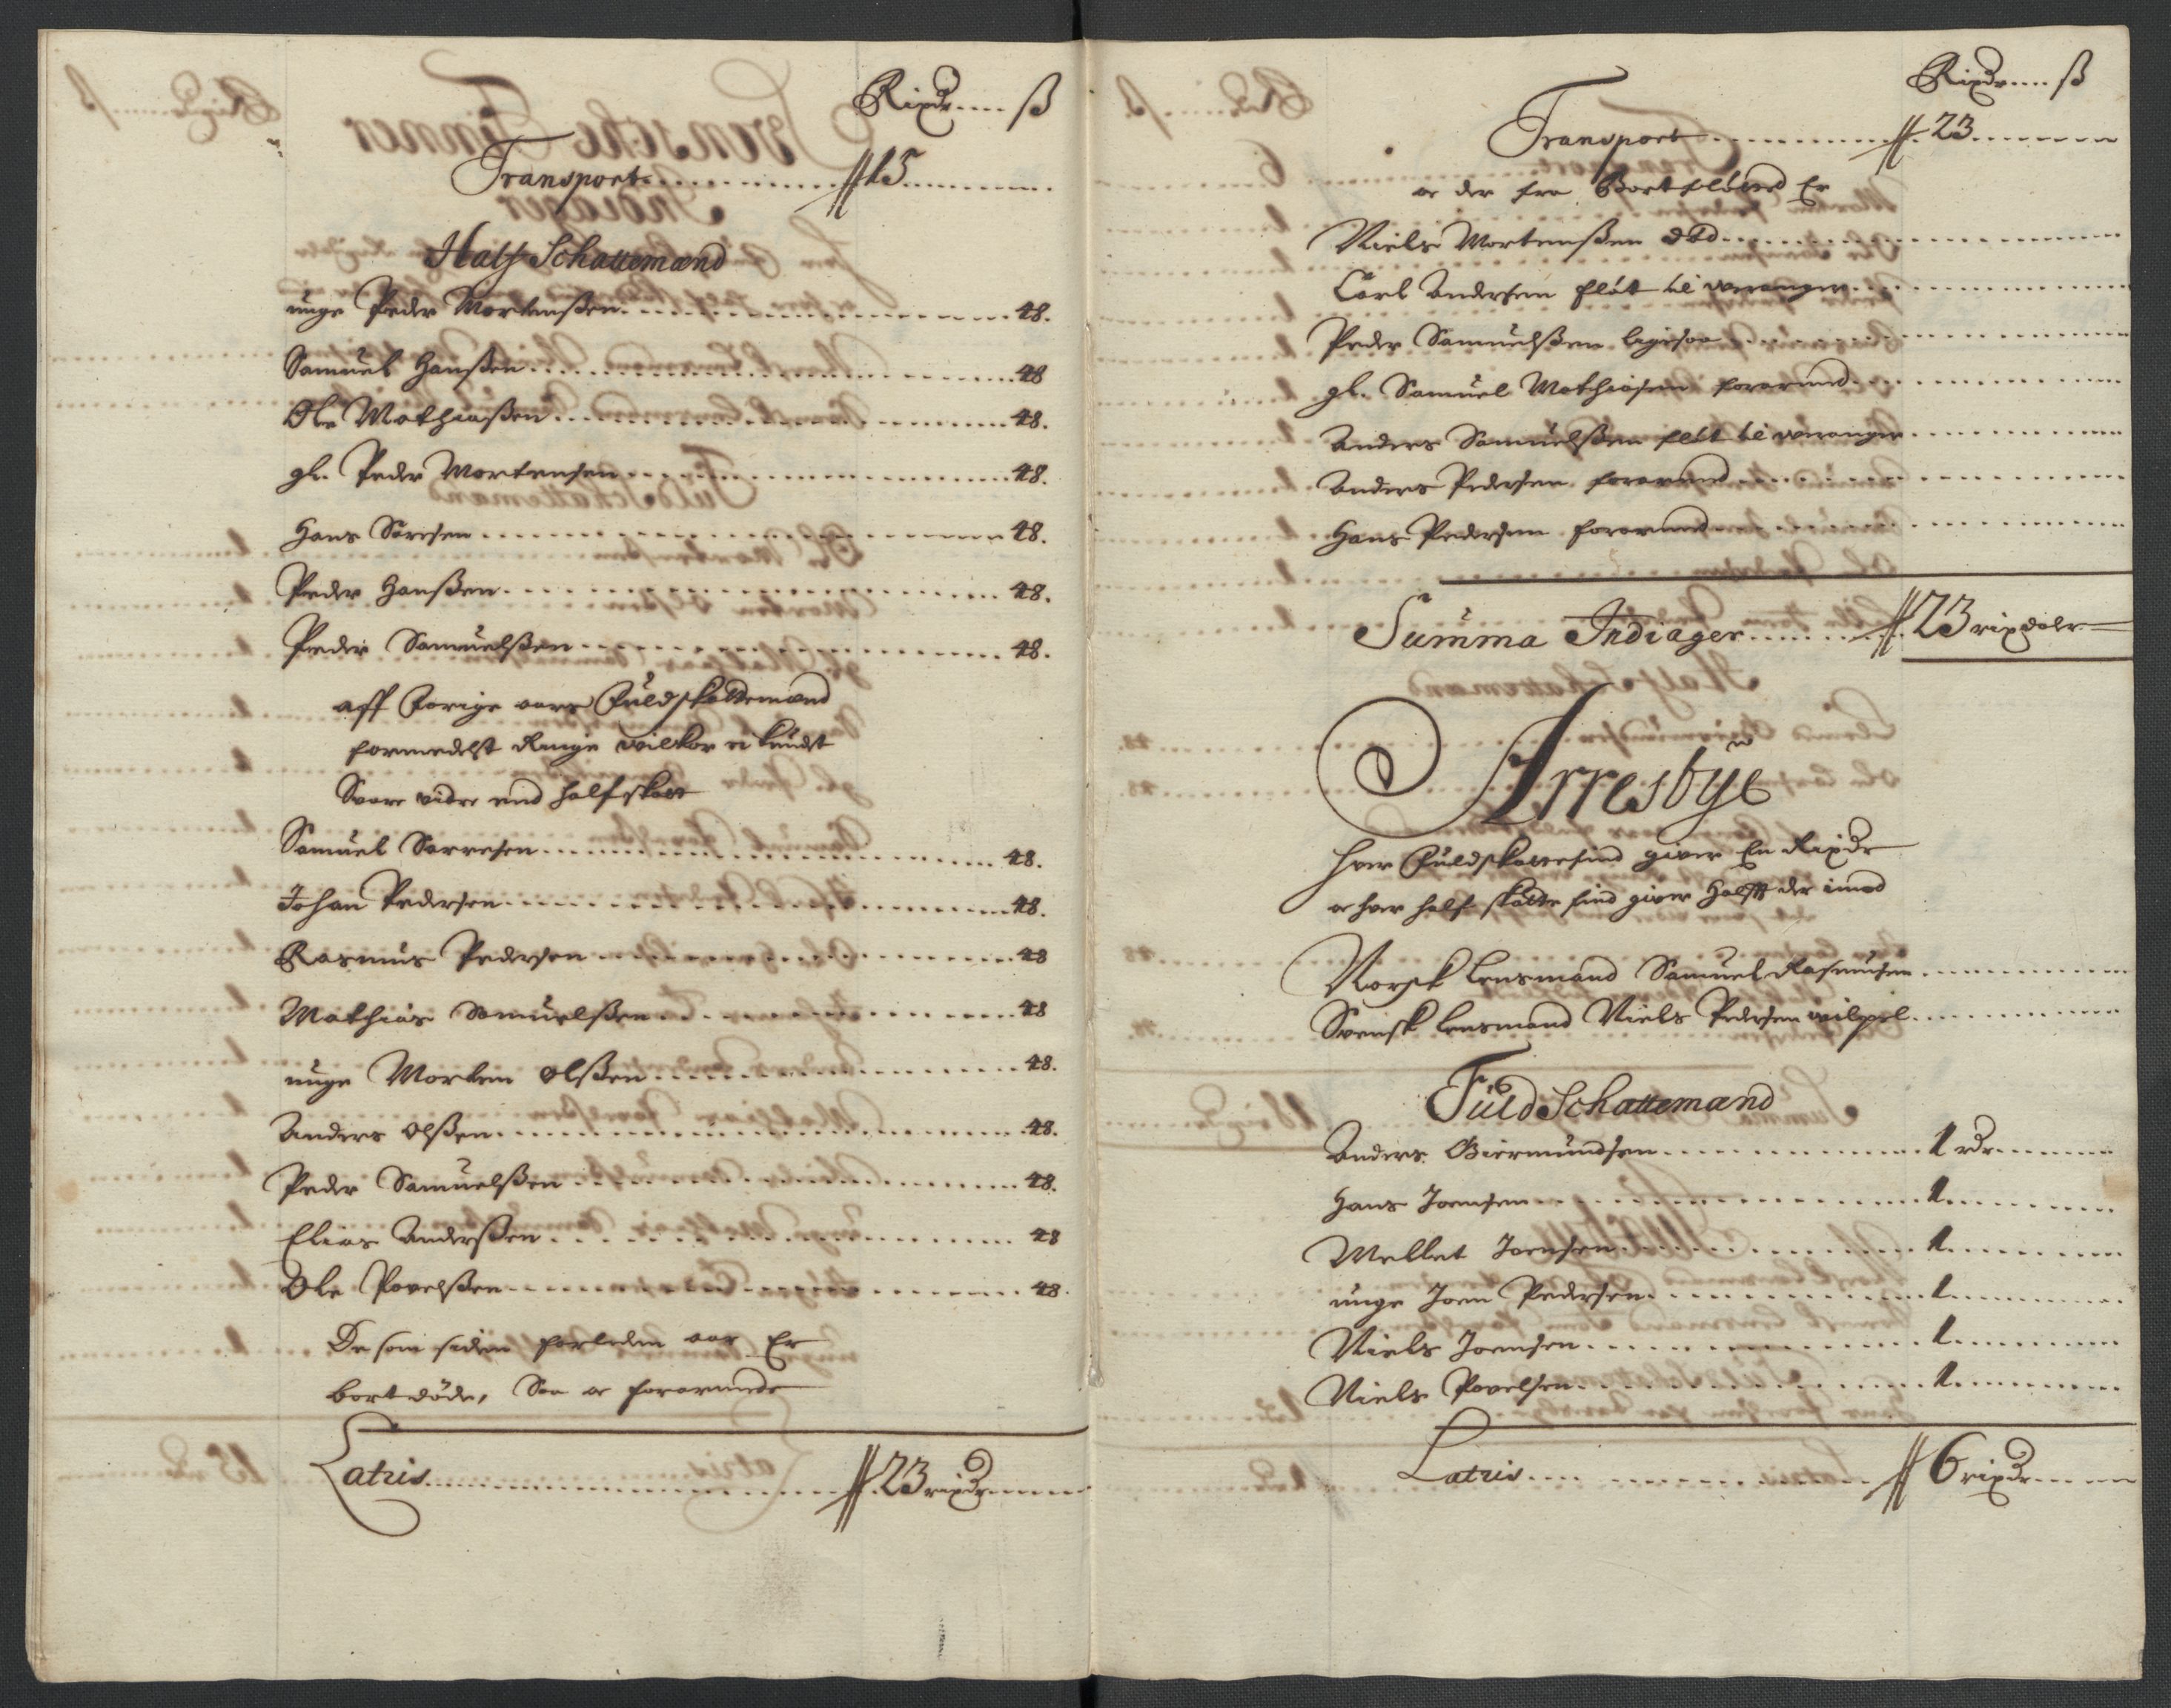 Rixdr ß
Transport 15
Half Schattemænd
unge Peder Mortenßen 48.
Samuel Hanßen 48
Ole Mathiaßen 48.
gl. Peder Mortensen 48.
Hans Sarresen 48.
Peder Hanßen 48.
Peder Samuelßen 48.
aff Forige aars Fuldskattemænd
formedelst Ringe vilkor ei kundet
Svare vidre end half skatt
Samuel Sarresen 48.
Johan Pedersen 48.
Rasmus Pedersen 48
Mathias Samuelßen 48
unge Morten Olßen 48.
Anders Olßen 48.
Peder Samuelßen 48.
Elias Anderßen 48
Ole Povelßen 48.
De som siden forleden aar Er
bortdøde, Saa oc forarmede
Latris 23 rixdr
Rixdr ß
Transport 23
oc der fra Bortfløtted Er
Niels Mortenßen død
Carl Andersen fløt til Waranger
Peder Samuelßen ligesaa
gl. Samuel Mathiasen forarmed
Anders Samuelßen fløt til Waranger
Anders Pedersen forarmed
Hans Pedersen forarmed
Summa Indiager 23 rixdaler
Arresbye
Hver Fuldskattefind giver En Rixdr
oc hver half skatte find giver Halfft der imod
Norsk Lensmand Samuel Rasmusen
Svensk Lensmand Niels Pedersen
Fuld Schattemænd
Anders Giermundsen 1 rdr
Hans Joensen 1
Mellet Joensen 1
unge Joen Pedersen 1
Niels Joensen 1
Niels Povelsen 1
Latris 6 rixdr